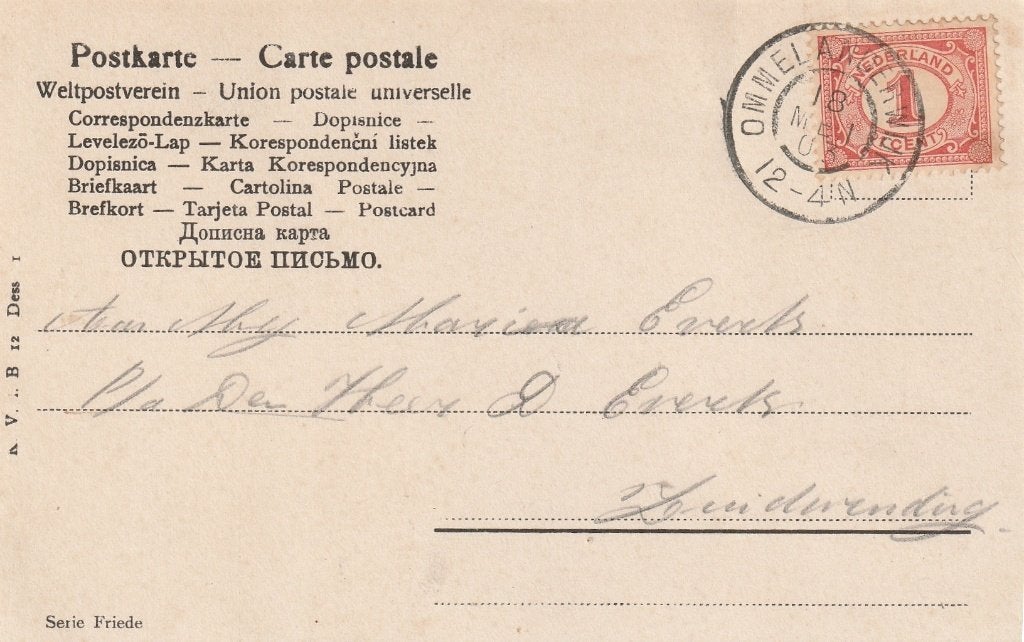 Postkarte — Carte postale
Weltpostverein – Union postale universelle
Correspondenzkarte – Dopisnice –
Levelezō-Lap — Korespondenční listek
Dopisnica – Karta Korespondencyjna
Briefkaart – Cartolina Postale –
Brefkort — Tarjeta Postal – Postcard
Дописна карта
ОТКРЫТОЕ ПИСЬМО.
NEDERLAND
1
CENT
18
MEI
12-4N
Aan Mej Maria Everts
P/a Den Heer D Everts
Zuidwending
B 12 Dess 1
Serie Friede